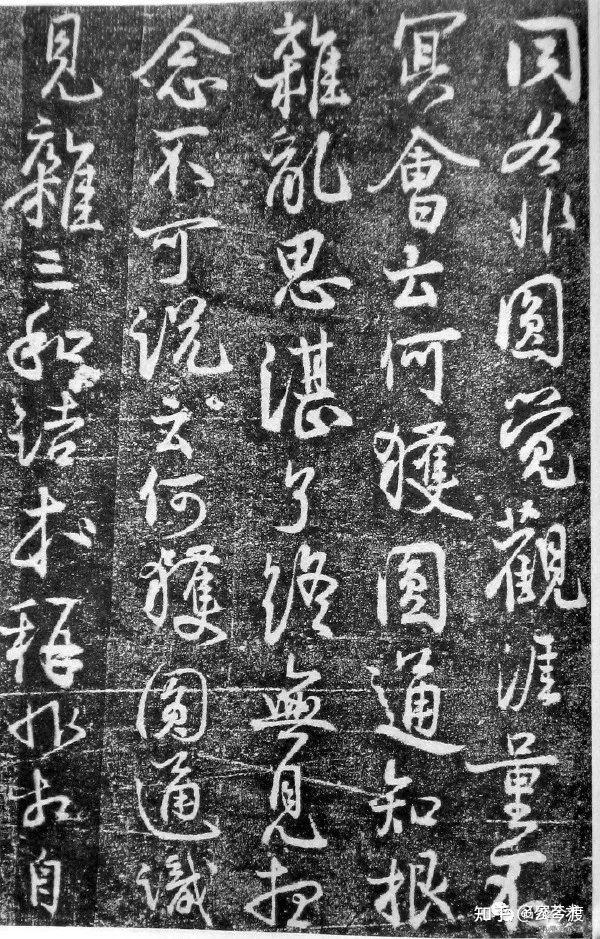 同各非圓覺觀涯量不
冥會云何獲圓通知根
雜亂思湛了終無見想
念不可脫云何獲圓通識
見雜三和詰本稱非相自
知乎